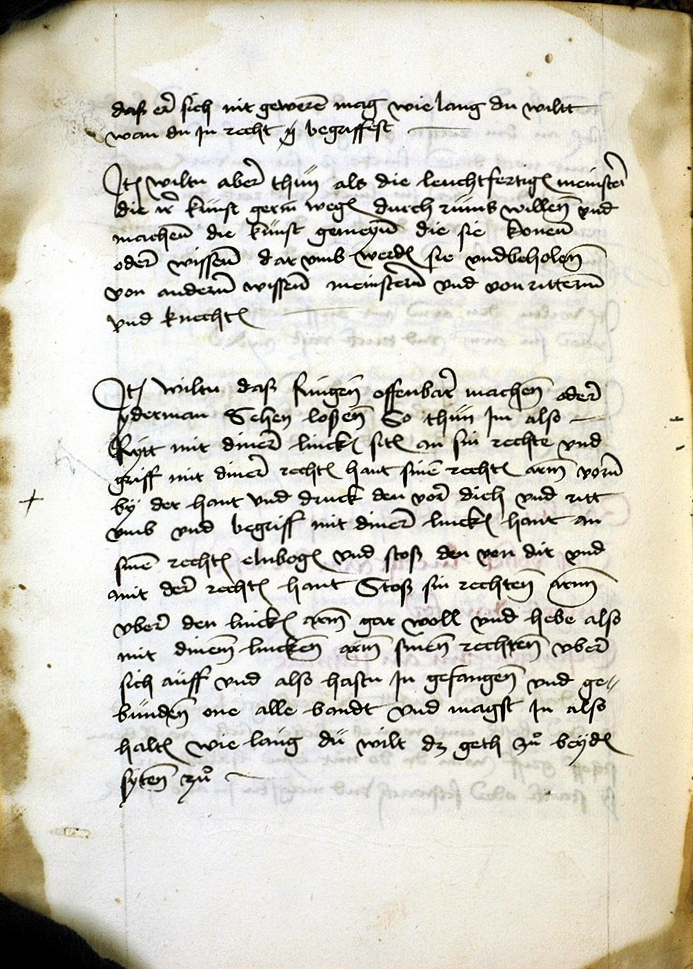 das er sich nit geweren mag wie lang du wiltt
wan du jn recht begriffest
Jtem wiltu aber thun als die leuchtfertigen meinster
die ir kunst gern wegen durch rums willen vnd
machenn die kunst gemeyn die sie konen
oder wissen dar vmb werden sie vnbeholen
von andern wissen meinstern vnd von rittern
vnd knechten
Jtem wiltu das Ringen offenbar machen oder
yderman Sehen lossen So thun jm also
Rytt mit diner lincken siten an sin rechte vnd
griff mit diner rechten hant sinen rechten arm vorn
by der hant vnd druck den vor dich vnd ritt
vmb vnd begriff mit diner lincken hant an
sinen rechten elnbogen vnd stoss den von dir vnd
mit der rechten hant Stoss sin rechten arm
vber den lincken arm gar woll vnd hebe also
mit dinem lincken arm sinen rechten vber
sich auff vnd also hastu jn gefangen vnd ge//
bunden one alle bandt vnd magst jn also
halten wie lang du wilt dz geth zu beyden
syten zu